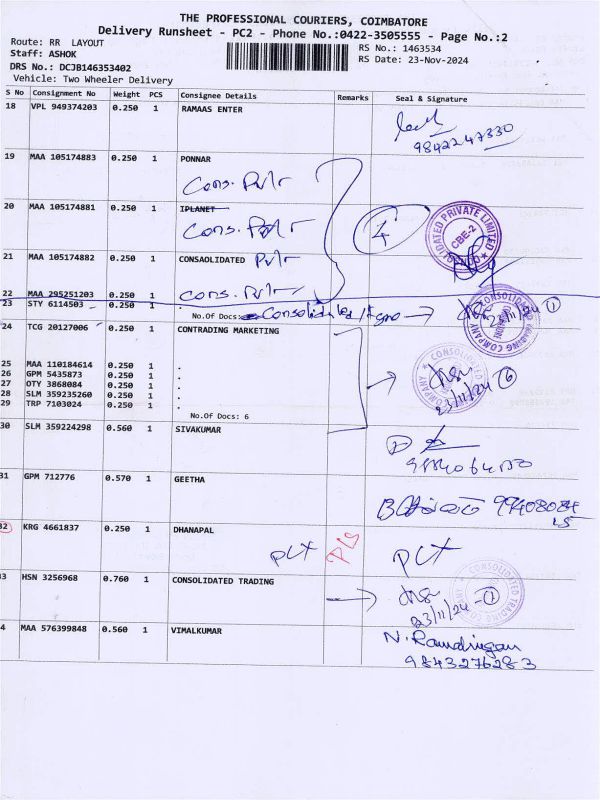 THE PROFESSIONAL COURIERS, COIMBATORE
Delivery Runsheet - PC2 - Phone No.:0422-3505555 - Page No.:2
Route: RR LAYOUT
Staff: ASHOK
DRS No.: DCJB146353402
Vehicle: Two Wheeler Delivery
RS No.: 1463534
RS Date: 23-Nov-2024
S No Consignment No Weight PCS Consignee Details Remarks Seal & Signature
18 VPL 949374203 0.250 1 RAMAAS ENTER
9842247330
19 MAA 105174883 0.250 1 PONNAR
Cons. Pvt
20 MAA 105174881 0.250 1 IPLANET
Cons. Pvt
4
21 MAA 105174882 0.250 1 CONSAOLIDATED Pvt
PRIVATE LIMITED
CBE-2
22 MAA 295251203 0.250 1 Cons. Pvt
23 STY 6114503 0.250 1
No.Of Docs: Consolidated
23/11/24 1
CONSOLIDATED TRADING COMPANY
24 TCG 20127006 0.250 1 CONTRADING MARKETING
25 MAA 110184614 0.250 1 .
26 GPM 5435873 0.250 1 .
27 OTY 3868084 0.250 1 .
28 SLM 359235260 0.250 1 .
29 TRP 7103024 0.250 1 .
No.Of Docs: 6
CONSOLIDATED COMPANY
23/11/24 6
30 SLM 359224298 0.560 1 SIVAKUMAR
31 GPM 712776 0.570 1 GEETHA
32 KRG 4661837 0.250 1 DHANAPAL
PLX PLX
33 HSN 3256968 0.760 1 CONSOLIDATED TRADING
23/11/24 - 1
CONSOLIDATED TRADING
4 MAA 576399848 0.560 1 VIMALKUMAR
9843276283